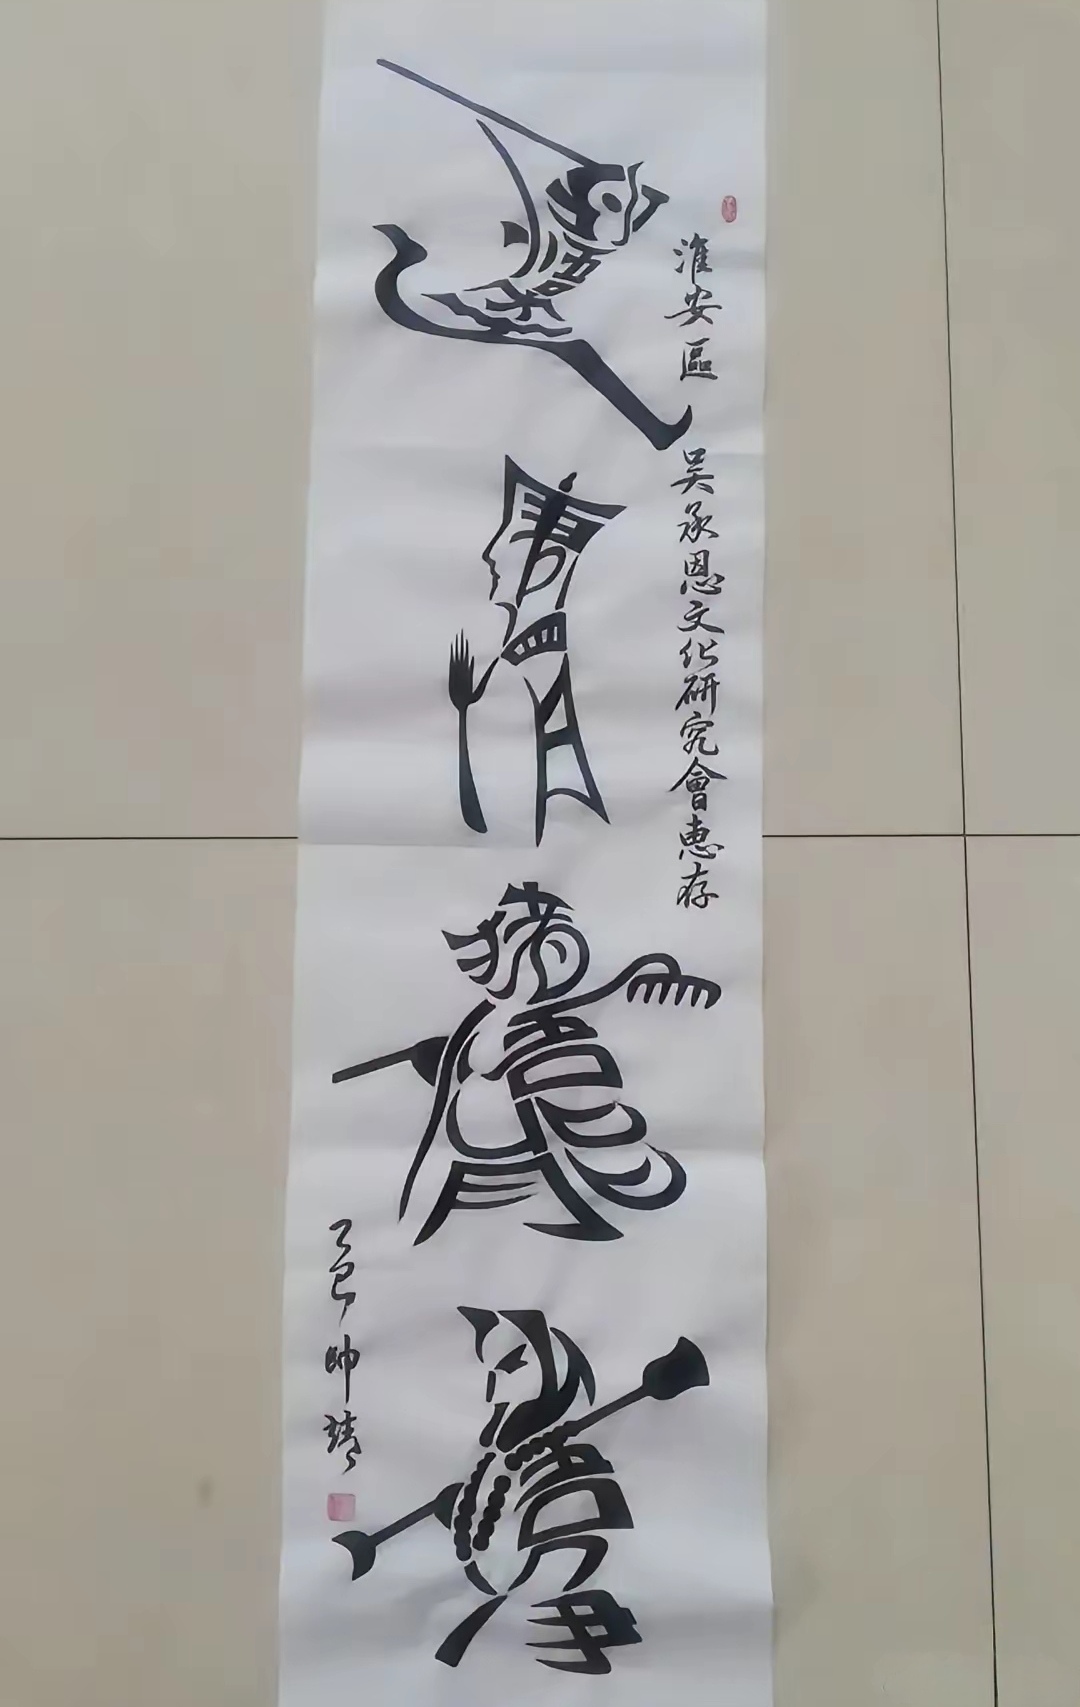 淮安區 吴承恩文化研究會惠存
孙悟空
唐僧
猪悟能
沙悟净
乙巳 帥靖